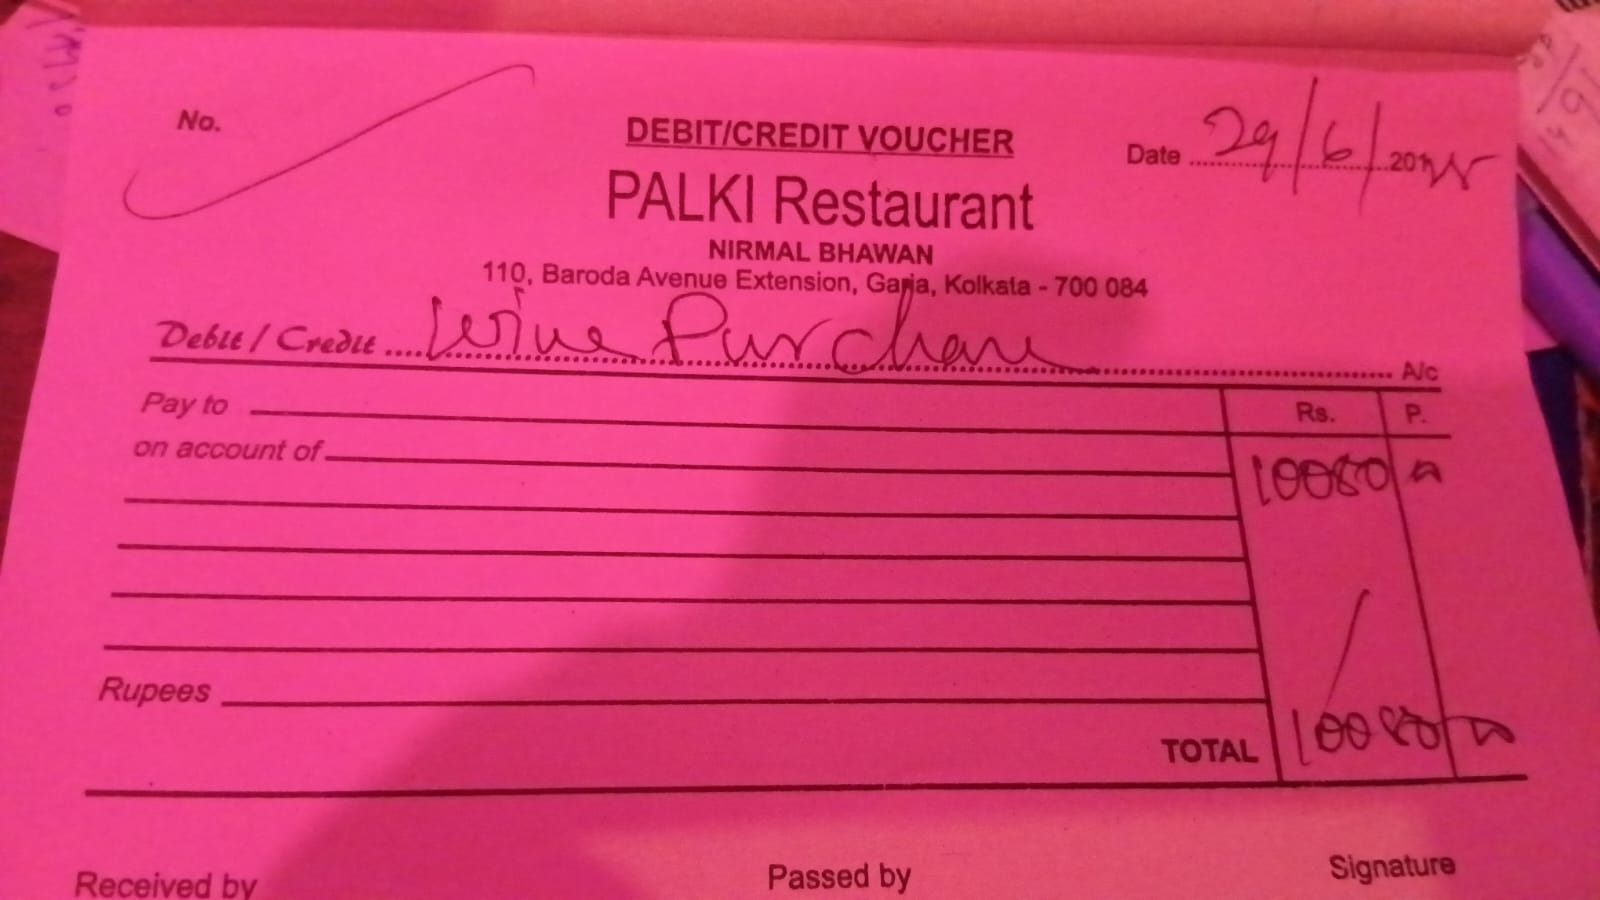 No.
DEBIT/CREDIT VOUCHER
Date 29/6/201
PALKI Restaurant
NIRMAL BHAWAN
110, Baroda Avenue Extension, Garia, Kolkata - 700 084
Debit / Credit Wine Purchase A/c
Pay to Rs. P.
on account of 10080
Rupees
TOTAL 10080
Received by Passed by Signature